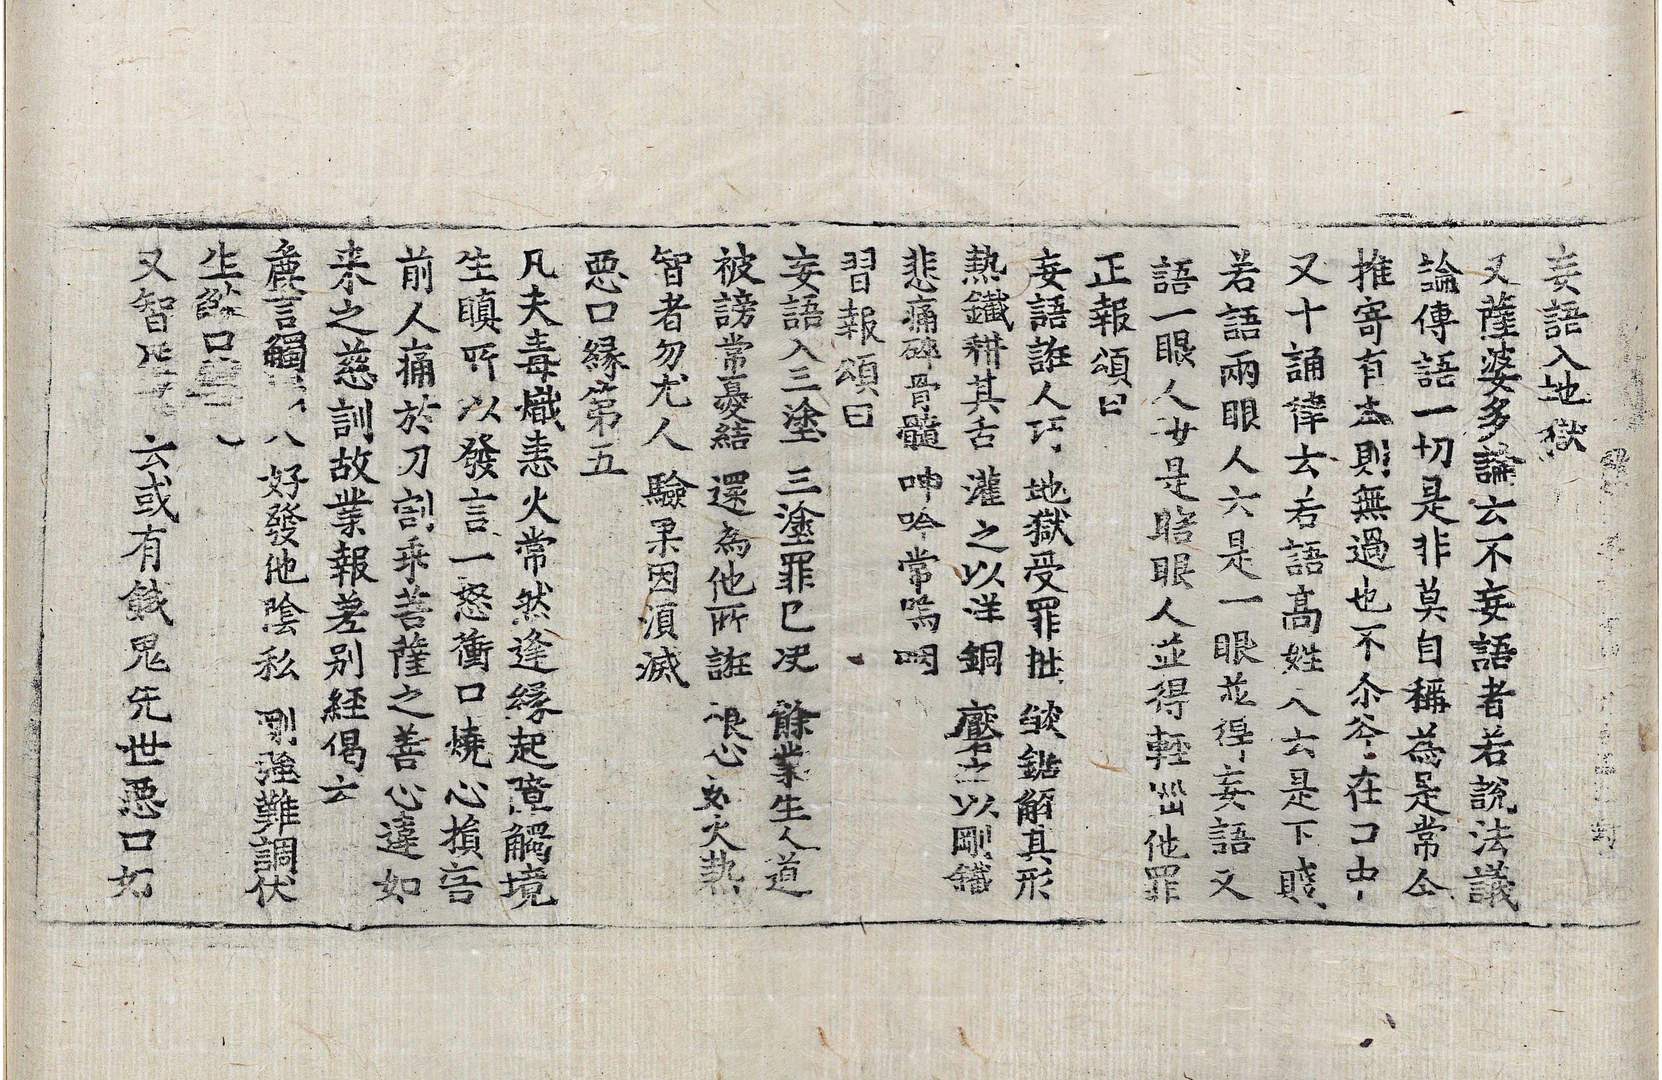 妄語入地獄
又薩婆多論云不妄語者若說法議
論傳語一切是非莫自稱為是常令
推寄有本則無過也不尒斧在口中
又十誦律云若語高姓人云是下賤
若語兩眼人云是一眼並得妄語又
語一眼人汝是瞎眼人並得輕惱他罪
正報頌曰
妄語誑人巧 地獄受罪拙 焰鋸解其形
熱鐵耕其舌 灌之以洋銅 磨之以剛鐵
悲痛碎骨髓 呻吟常嗚咽
習報頌曰
妄語入三塗 三塗罪已決 餘業生人道
被謗常憂結 還為他所誑 恨心如火熱
智者勿尤人 驗果因須滅
惡口緣第五
凡夫毒熾恚火常然逢緣起障觸境
生瞋所以發言一怒衝口燒心損害
前人痛於刀割乖菩薩之善心違如
来之慈訓故業報差別經偈云
麁言觸 好發他陰私 剛強難調伏
生餤口
又智 云或有餓鬼先世惡口好